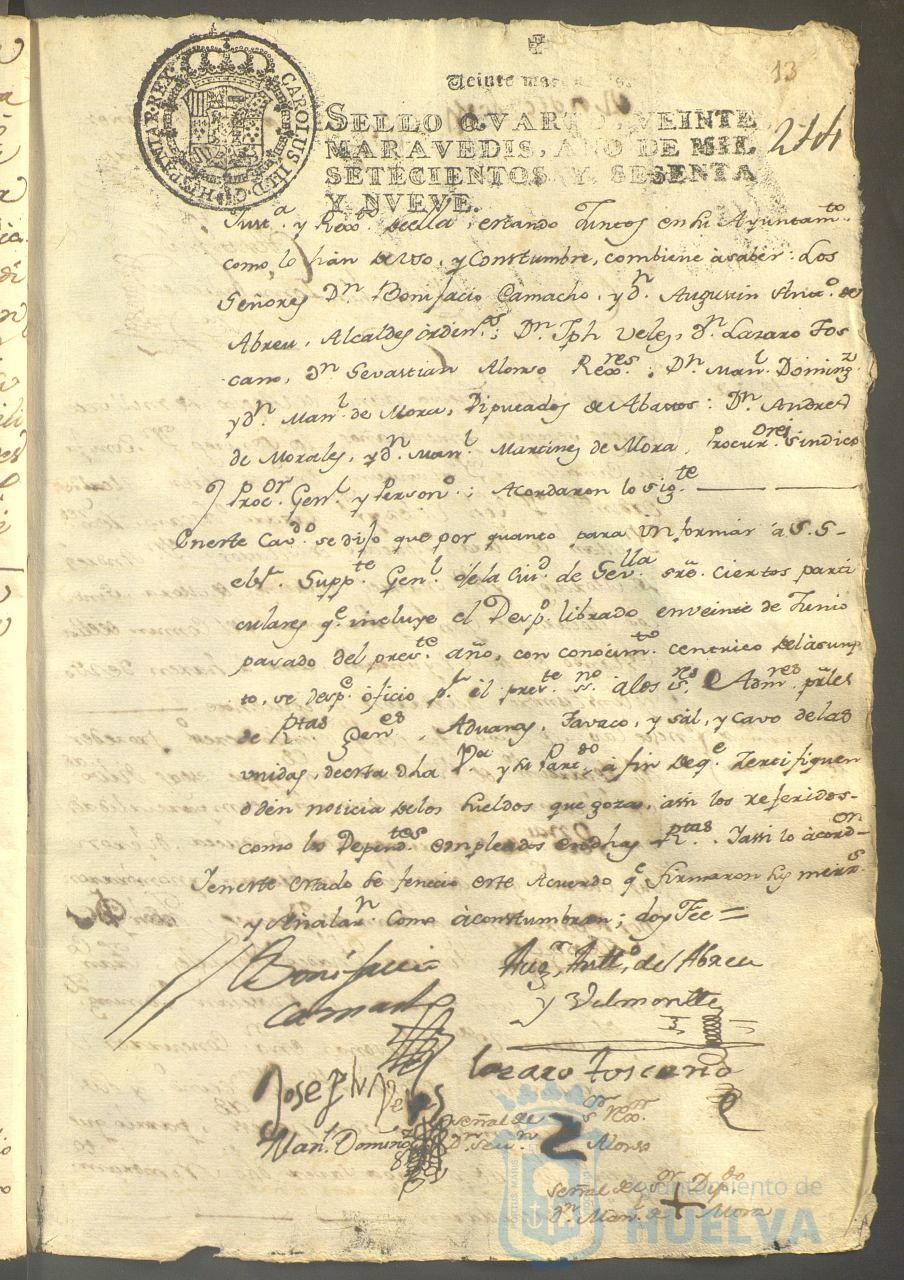 13
Veinte maravedis.
244
CAROLUS. III. D. G. HISPANIAR. REX.
SELLO QVARTO, VEINTE
MARAVEDIS, AÑO DE MIL
SETECIENTOS Y SESENTA
Y NVEVE.
Just.ª y Rex.to de ella, estando Juntos en su Ayuntam.to
como lo han de uso, y Constumbre, combiene à saber: Los
Señores D.n Bonifacio Camacho, y d.n Augustin Ant.o de
Abreu, Alcaldes órden.os; D.n Jph Velez, d.n Lazaro Tos
cano, d.n Sevastian Alonso Rex.res; D.n Man.l Doming.z
y d.n Man.l de Mora, Diputados de Abastos: D.n Andres
de Morales, y d.n Man.l Martines de Mora, Procur.ores Sindico
Proc.or Gen.l y Person.o; Acordaron lo sig.te
En este Cav.do se dijo que por quanto para informar á S. S.
el Supp.te Gen.l de la Ciu.d de Sev.lla sre. ciertos parti
culares q.e incluye el Desp.o librado en veinte de Junio
pasado del pres.te año, con conocim.to centrico del asump
to, se desp.e oficio p.r el pres.te no. á los s.res Adm.res pr̃les
de R.tas Gen.es, Aduanas, Tavaco, y sal, y Cavo de las
unidas, de esta dha V.a y su Part.do á fin de q.e Zertifiquen
ó den noticia de los sueldos que gozan, assi los referidos
como los Depend.tes empleados en dhas R.tas. Y assi lo àcord.on
Y en este estado se fenecio este Acuerdo q.e firmaron sus mer.s
y señalar.n como àcostumbran; doy Fee =
Bonifacio
Camacho
Aug.n Antt.o de Abreu
y Velmontte
Joseph Veles
Lazaro toscano
Man.l Doming.z
señal de s.or Rex.or
D.n Sev.n Alonso
señal del s.or Dip.do
D.n Man.l de Mora
Ayuntamiento de
HUELVA